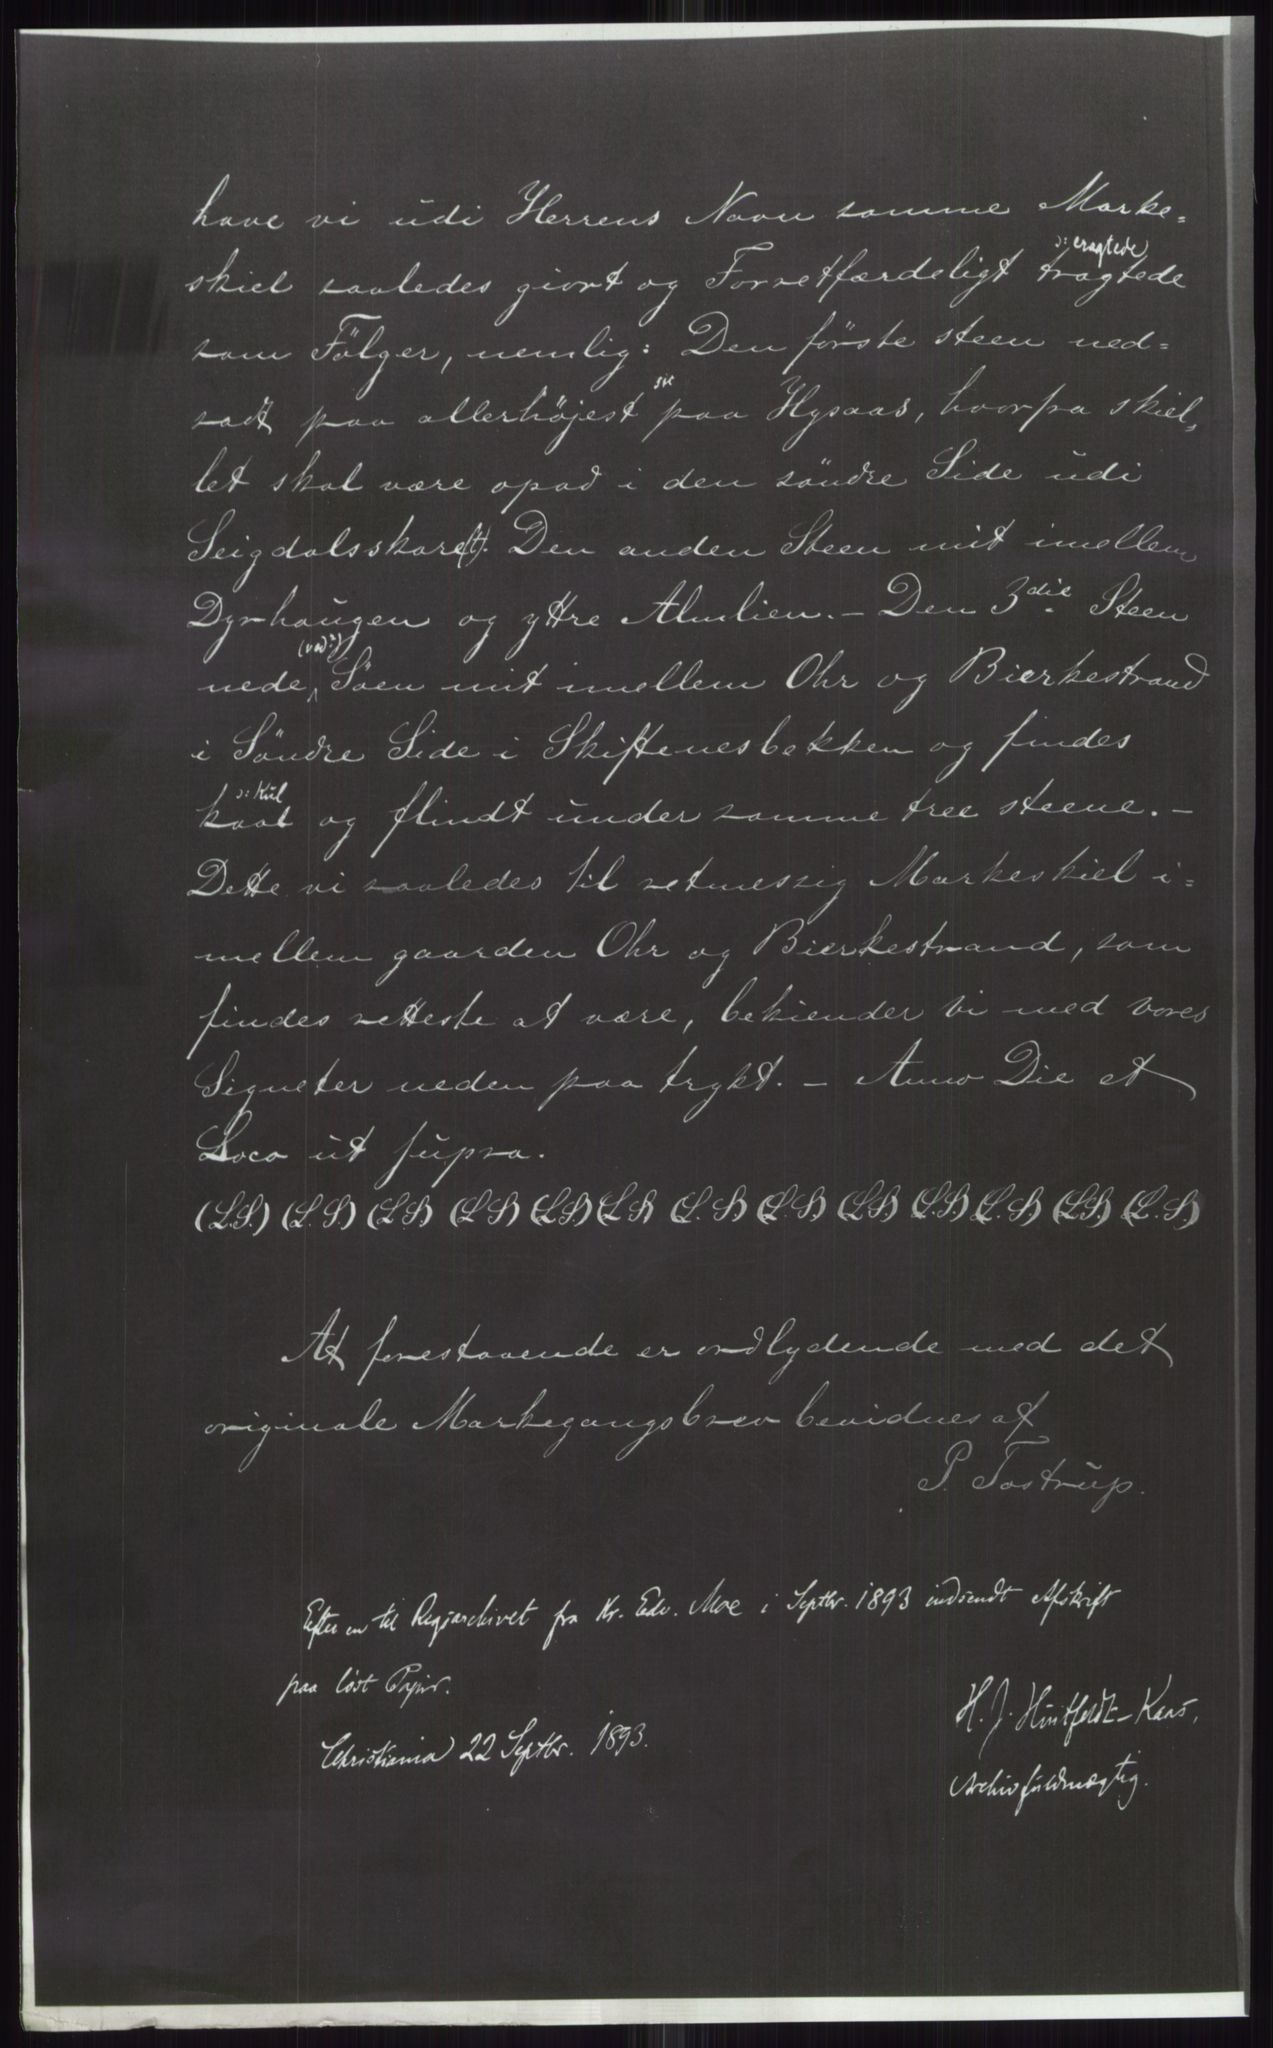 have vi udi Herrens Navn samme Marke=
skiel saaledes giort og Forretfærdeligt tragtede
ɔ: eragtede
som Fölger, nemlig: Den förste steen ned=
satt paa allerhöjest paa Hysaas, hvorfra skiel=
sic
let skal være opad i den söndre Side udi
Seigdalsskare(t). Den anden Steen mit imellem
Dyrhaugen og yttre Almlien. – Den 3die Steen
(ved?)
nede Söen mit imellem Ohr og Bierkestrand
i Söndre Side i Skiftenesbekken og findes
ɔ: Kul
kaal og flindt under samme tree steene. –
Dette vi saaledes til retmessig Markeskiel i=
mellem gaarden Ohr og Bierkestrand, som
findes retteste at være, bekiender vi med vores
Signeter neden paa trykt. – Anno Die et
Loco ut supra.
(L.S.) (L.S.) (L.S) (L.S) (L.S) (L.S (L.S) (L.S) (L.S) (L.S) (L.S) (L.S.) (L.S.)
At forestaaende er ordlydende med det
originale Markegangsbrev bevidnes af
P. Tostrup.
Efter en til Rigsarchivet fra Kr. Edv. Moe i Septbr. 1893 indsendt Afskrift
paa löst Papir.
Christiania 22 Septbr. 1893.
H. J. Huitfeldt-Kaas,
Archivfuldmægtig.